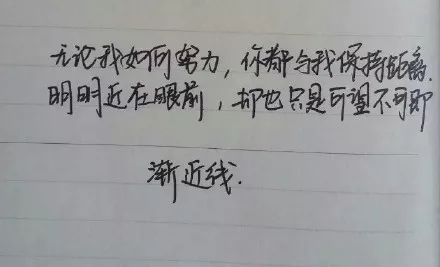 无论我如何努力，你都与我保持距离.
明明近在眼前，却也只是可望不可即
渐近线.